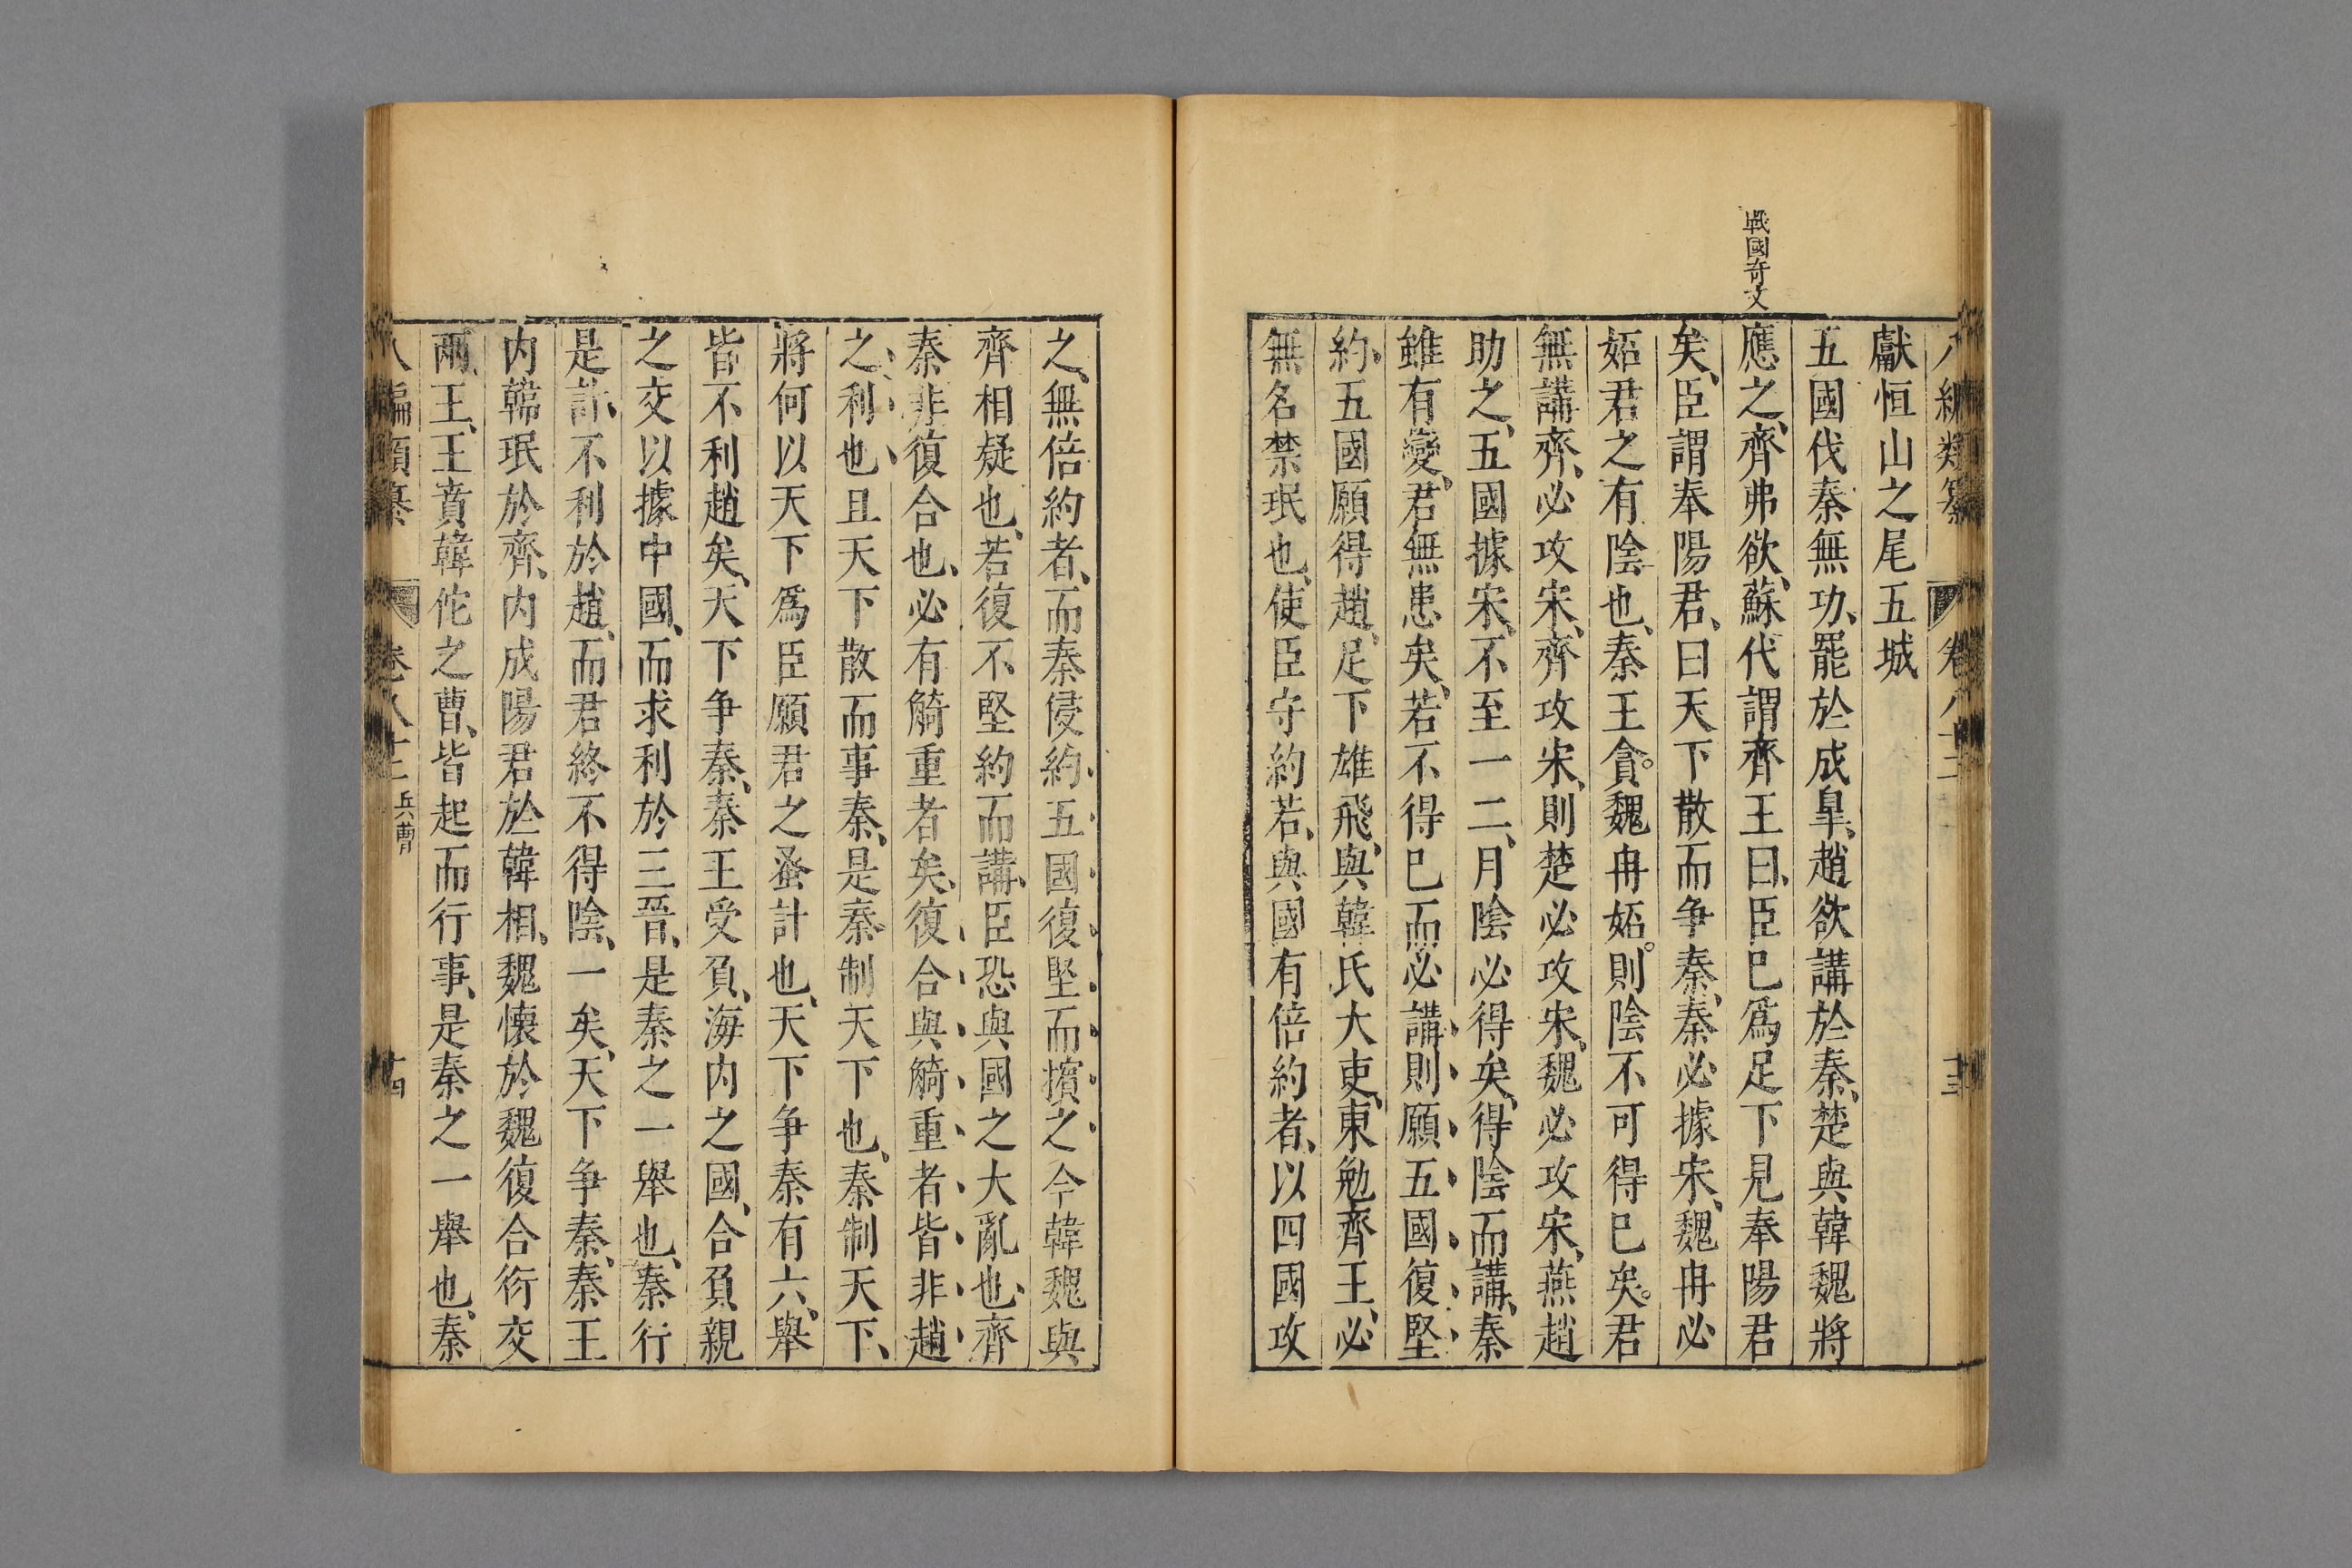 八編類纂 卷八十二 十三
獻恒山之尾五城
五國伐秦無功、罷於成臯、趙欲講於秦、楚與韓魏將
戰國奇文
應之、齊弗欲、蘇代謂齊王曰、臣已爲足下見奉陽君
矣、臣謂奉陽君、曰天下散而争秦、秦必據宋、魏冉必
妬君之有陰也、秦王貪。魏冉妬。則陰不可得已矣。君
無講齊、必攻宋、齊攻宋、則楚必攻宋、魏必攻宋、燕趙
助之、五國據宋、不至一二、月陰必得矣、得陰而講、秦
雖有變、君無患矣、若不得已而必講、則願五國復堅
約、五國願得趙、足下雄飛、與韓氏大吏、東勉齊王、必
無名禁珉也、使臣守約若、與國有倍約者、以四國攻
之、無倍約者、而秦侵約、五國復堅而擯之今韓魏與
齊相疑也、若復不堅約而講、臣恐與國之大亂也、齊
秦非復合也、必有觭重者矣、復合與觭重者皆非趙
之利也、且天下散而事秦、是秦制天下也、秦制天下、
將何以天下爲臣願君之蚤計也、天下争秦有六、舉
皆不利趙矣、天下争秦、秦王受負、海内之國、合負親
之交以據中國、而求利於三晉、是秦之一舉也、秦行
是計、不利於趙、而君終不得陰、一矣、天下争秦、秦王
内韓珉於齊、内成陽君於韓相、魏懐於魏復合衍交
兩、王、王賁韓佗之曹、皆起而行事、是秦之一舉也、秦
八編類纂 卷八十二 兵曹 十四